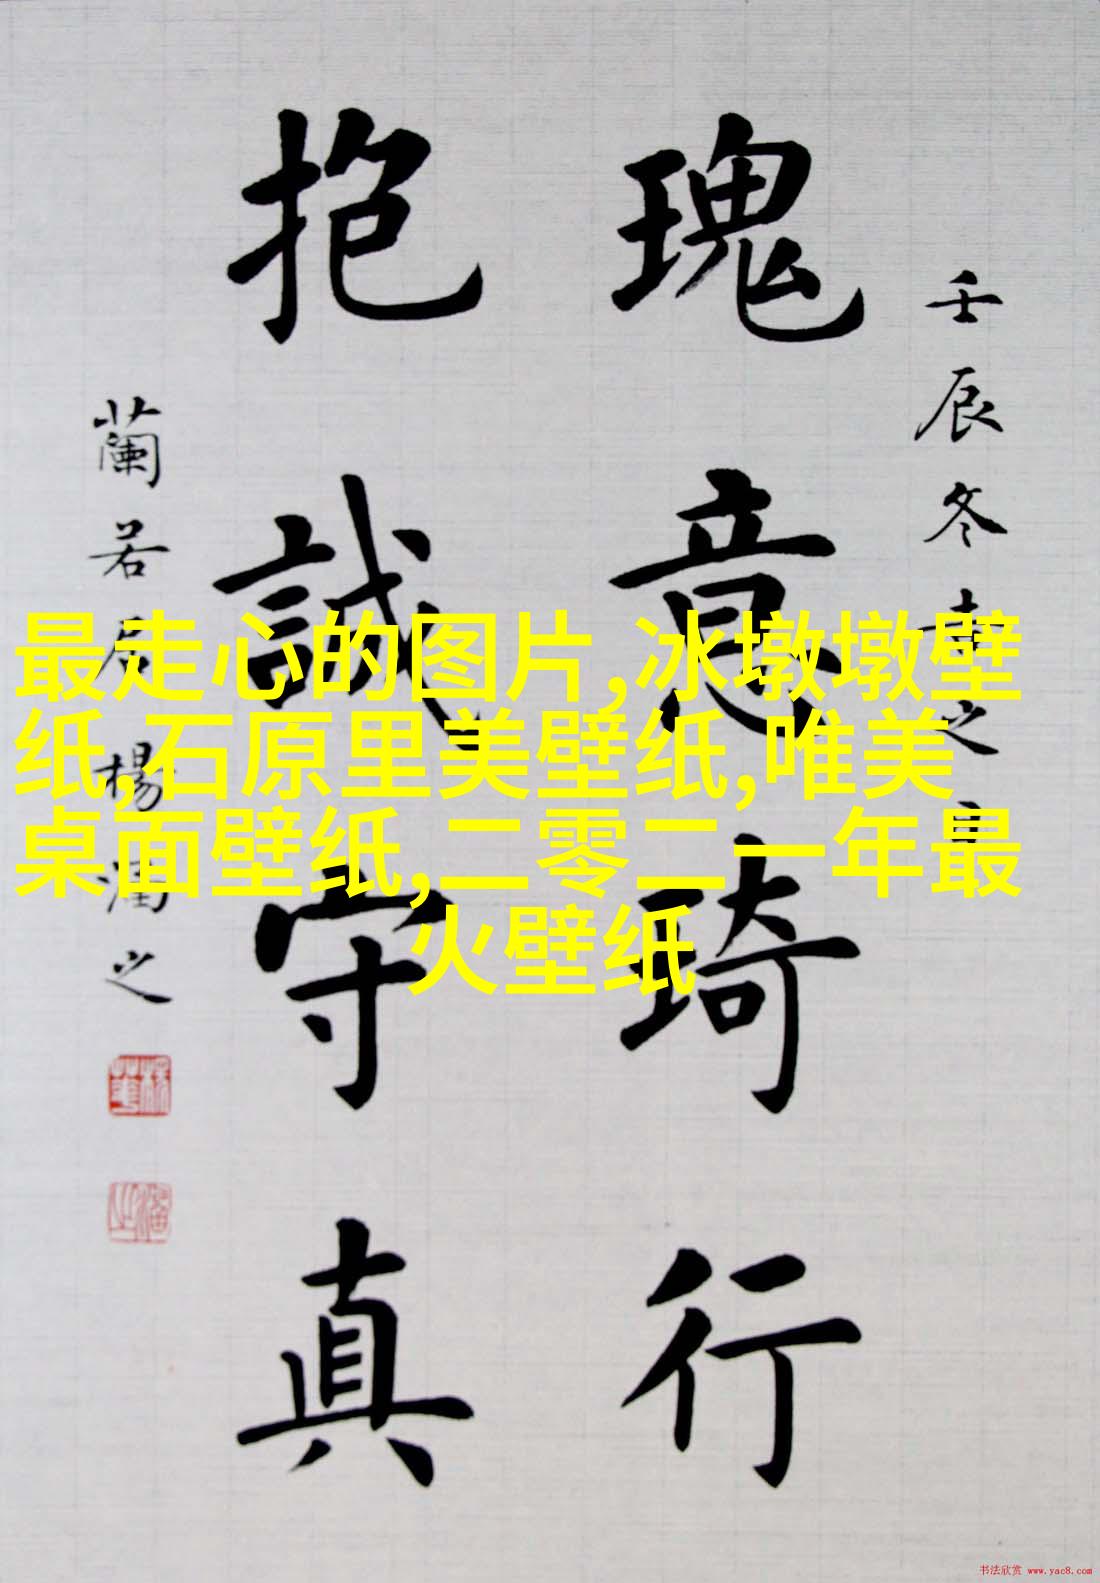 壬辰冬
瑰意琦行
抱誠守真
蘭若居 楊潤之
最走心的图片,冰墩墩壁
纸,石原里美壁纸,唯美
桌面壁纸,二零二一年最
火壁纸
书法欣赏 www.yac8.com